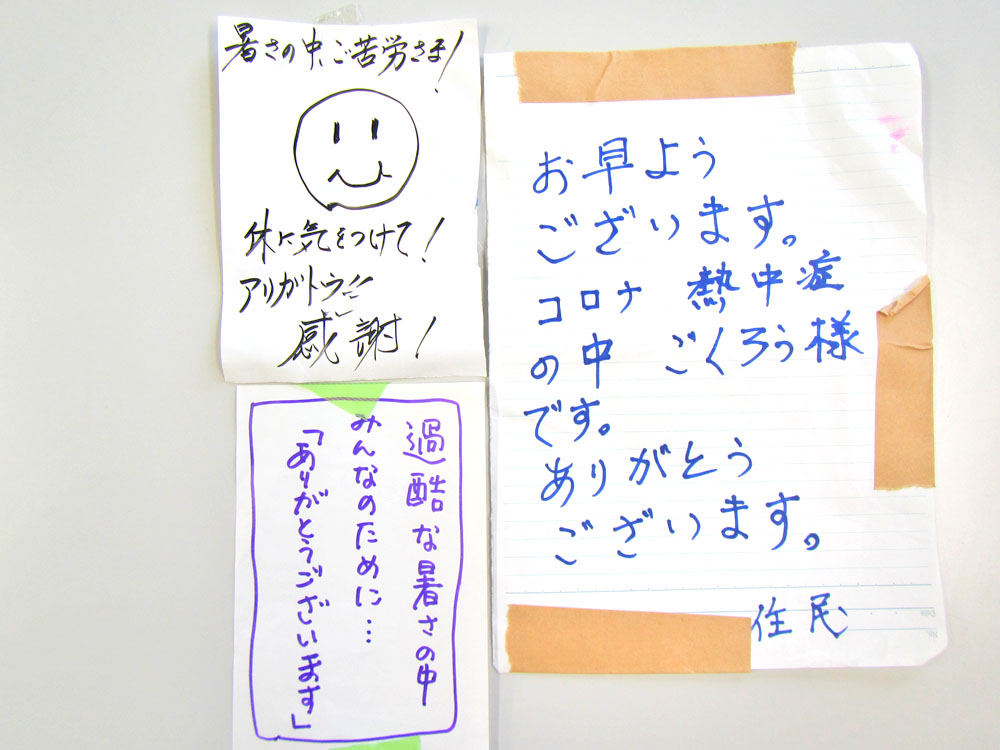 暑さの中、ご苦労さま!
体に気をつけて!
アリガトウ!!
感謝!
過酷な暑さの中
みんなのために…
「ありがとうございます」
お早よう
ございます。
コロナ 熱中症
の中 ごくろう様
です。
ありがとう
ございます。
住民